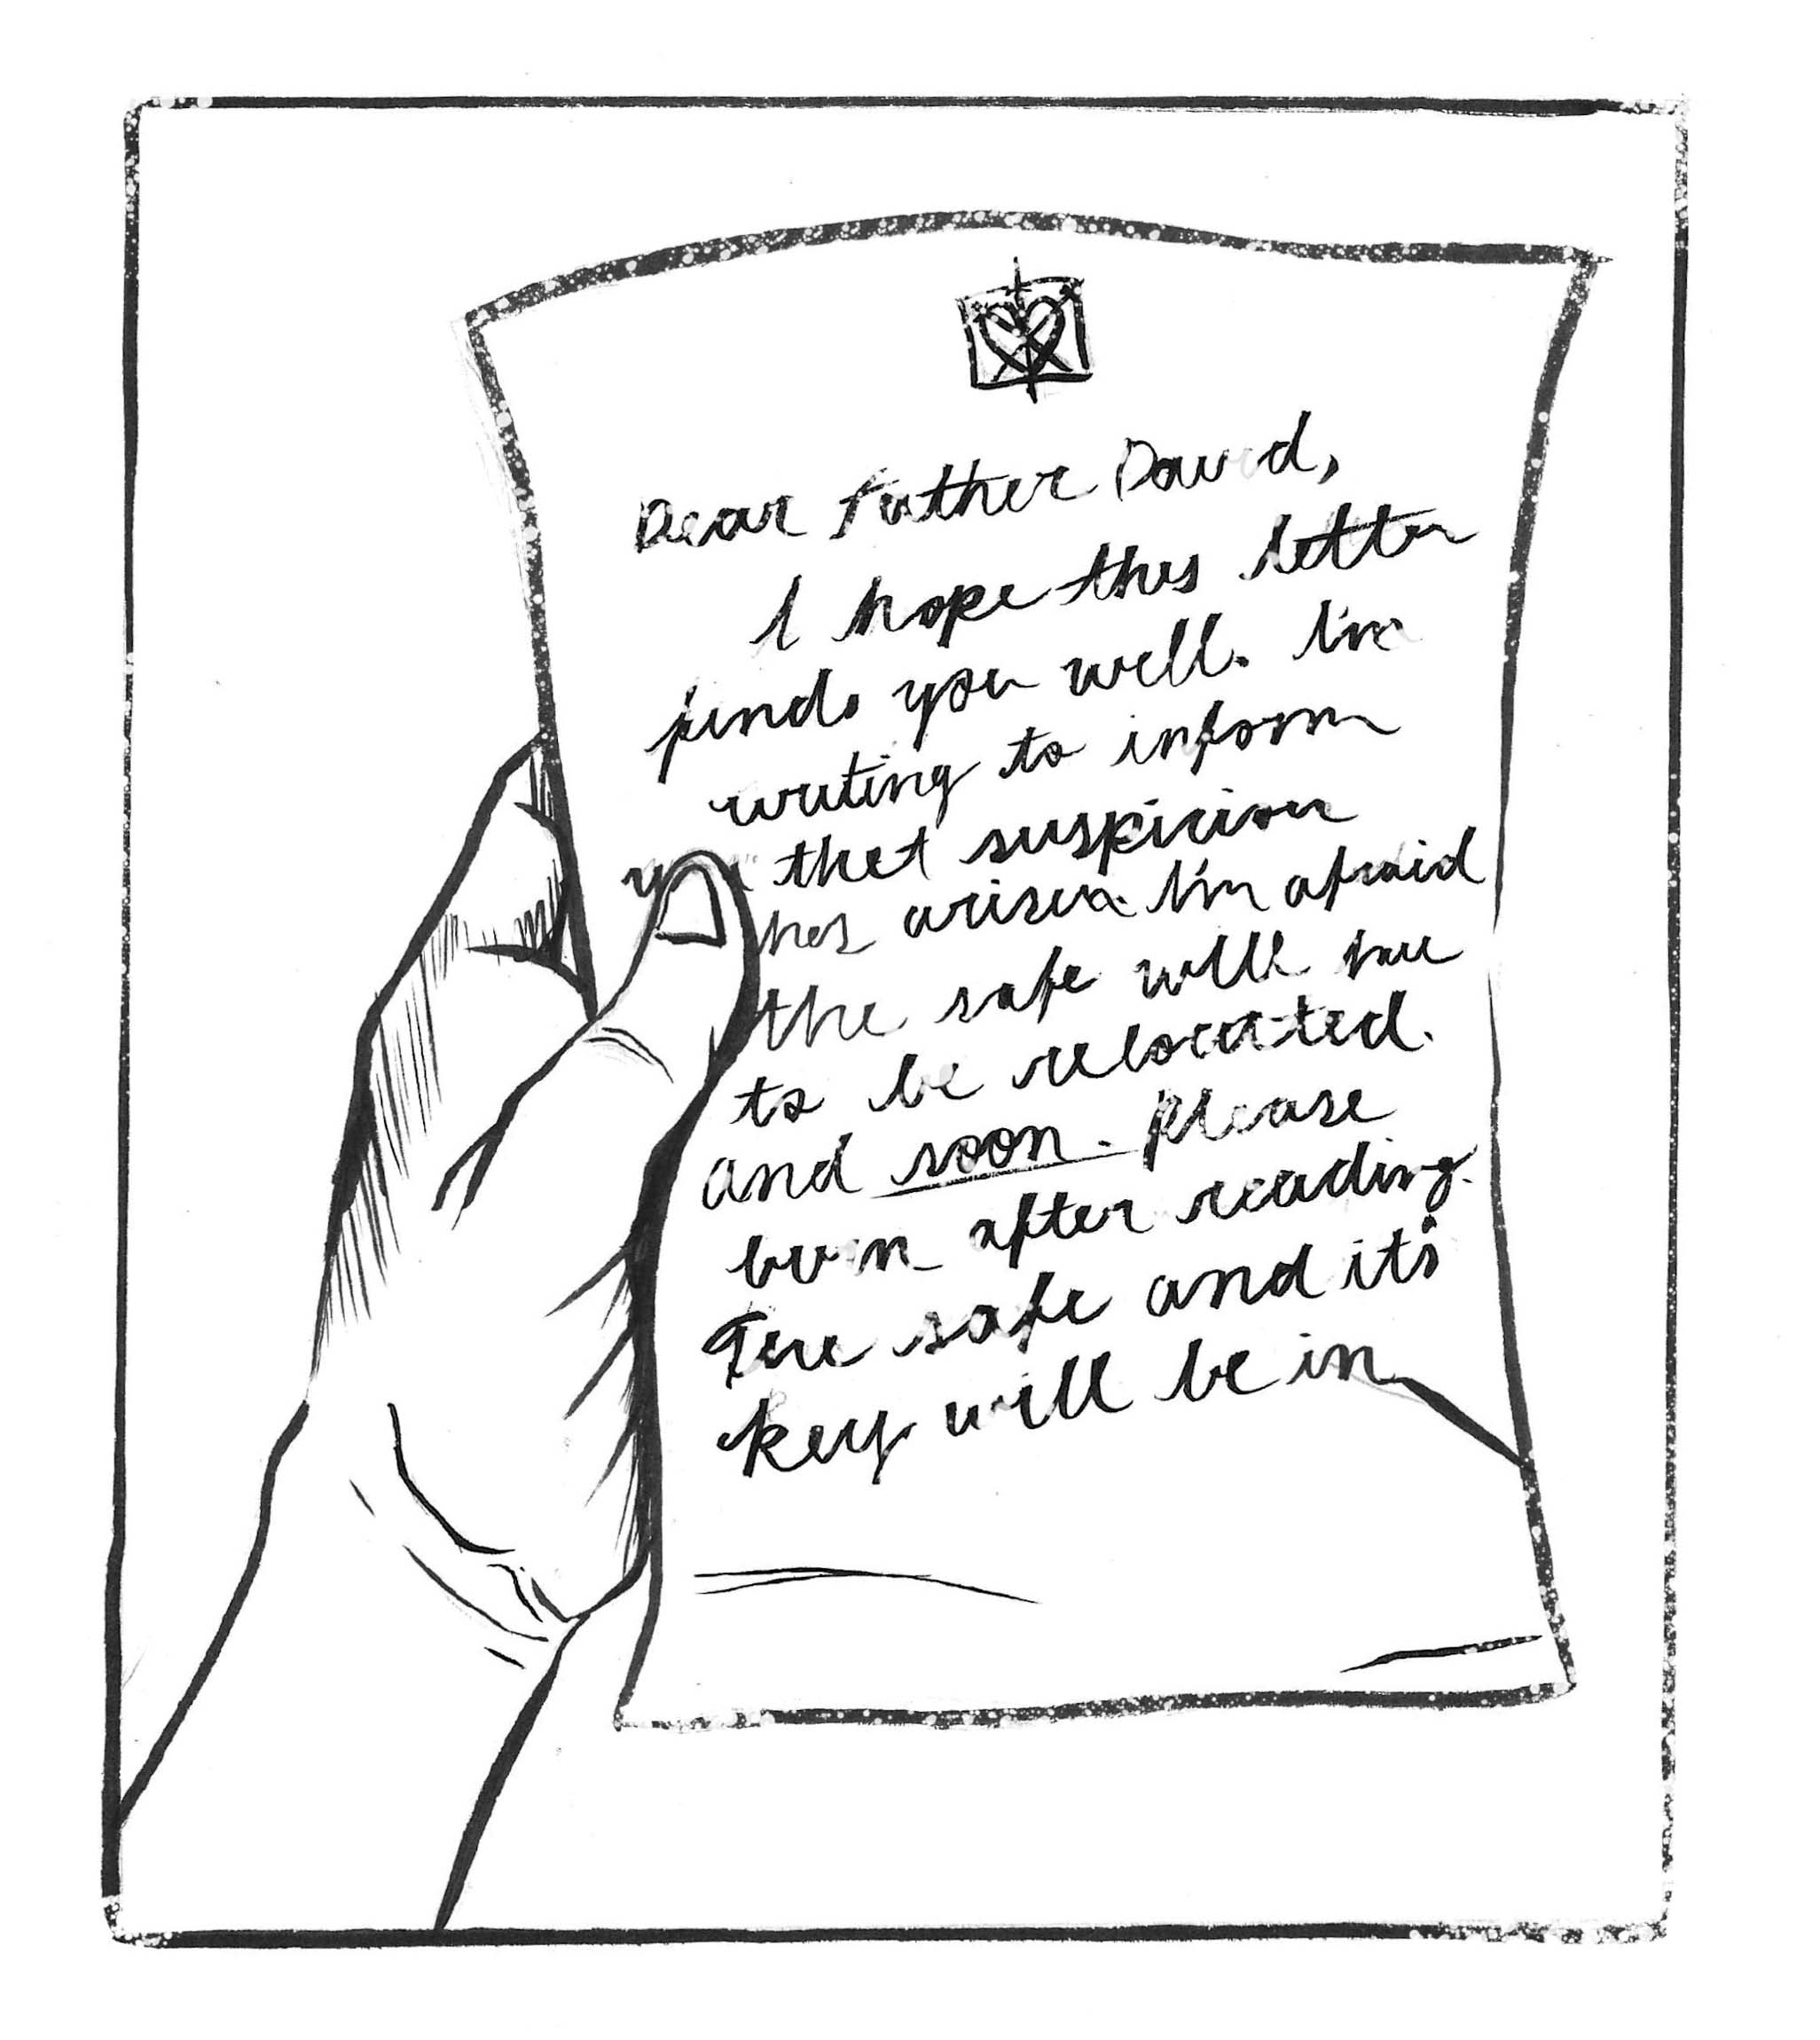 Dear Father David,
I hope this letter
finds you well. I'm
writing to inform
you that suspicion
has arisen. I'm afraid
the safe will have
to be relocated.
and soon. please
burn after reading.
The safe and it's
key will be in